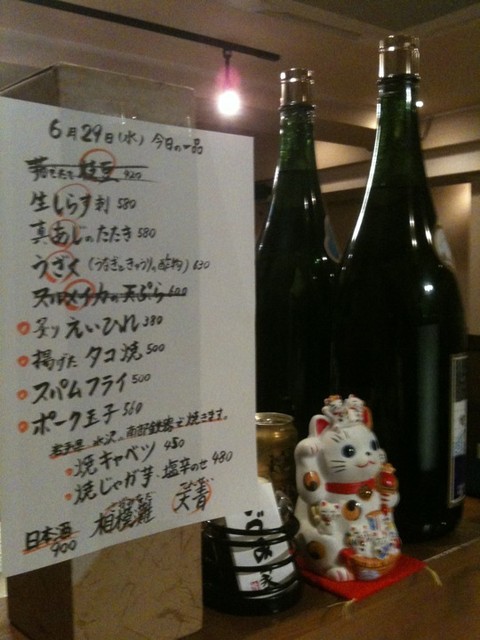 6月29日(水) 今日の一品
茹でたて枝豆 420
生しらす刺 580
真あじのたたき 580
うざく(うなぎときゅうりの酢物) 630
スルメイカの天ぷら 600
炙りえいひれ 380
揚げたタコ焼 500
スパムフライ 500
ポーク玉子 560
岩手県 水沢の南部鉄器で焼きます。
焼キャベツ 450
焼じゃが芋、塩辛のせ 480
日本酒 900 相模灘 天青